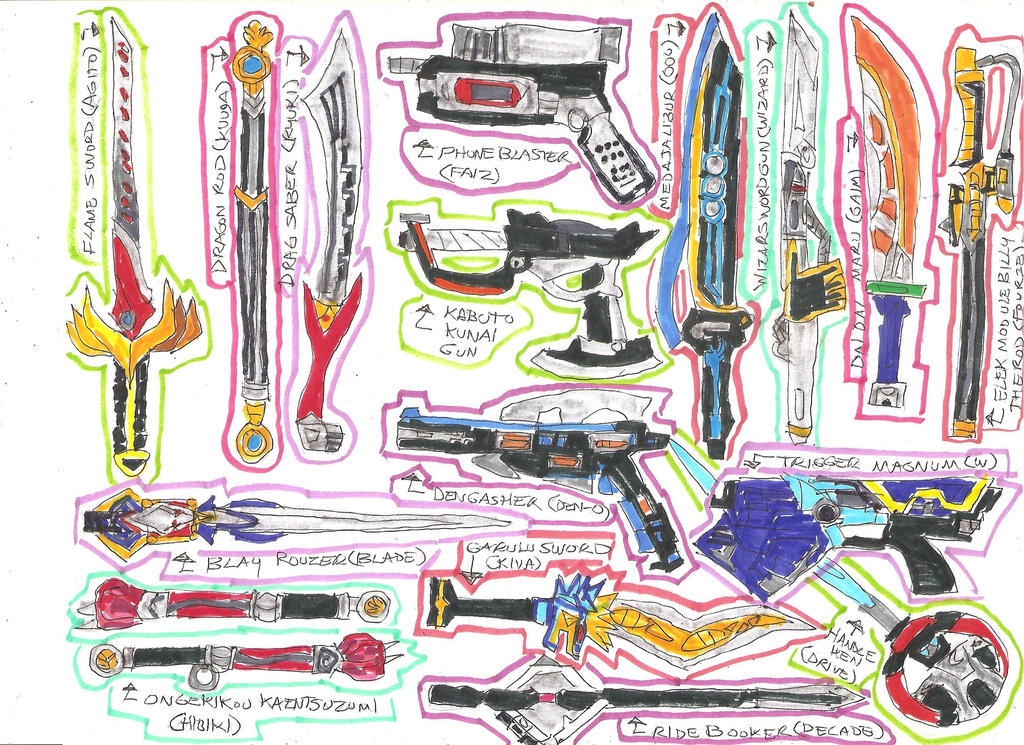 FLAME SWORD (AGITO)
DRAGON ROD (KUUGA)
DRAG SABER (RYUKI)
PHONE BLASTER
(FAIZ)
KABUTO
KUNAI
GUN
MEDAJALIBUR (OOO)
WIZARSWORDGUN (WIZARD)
DAI DAI MARU (GAIM)
ELEK MODULE BILLY
THE ROD (FOURZE)
DENGASHER (DEN-O)
TRIGGER MAGNUM (W)
BLAY ROUZER (BLADE)
GARULU SWORD
(KIVA)
HANDLE
KEN
(DRIVE)
ONGEKIKOU KAENTSUZUMI
(HIBIKI)
RIDE BOOKER (DECADE)